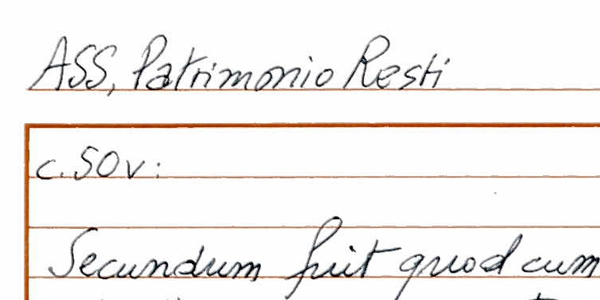 ASS, Patrimonio Resti
c. 50v:
Secundum fuit quod cum